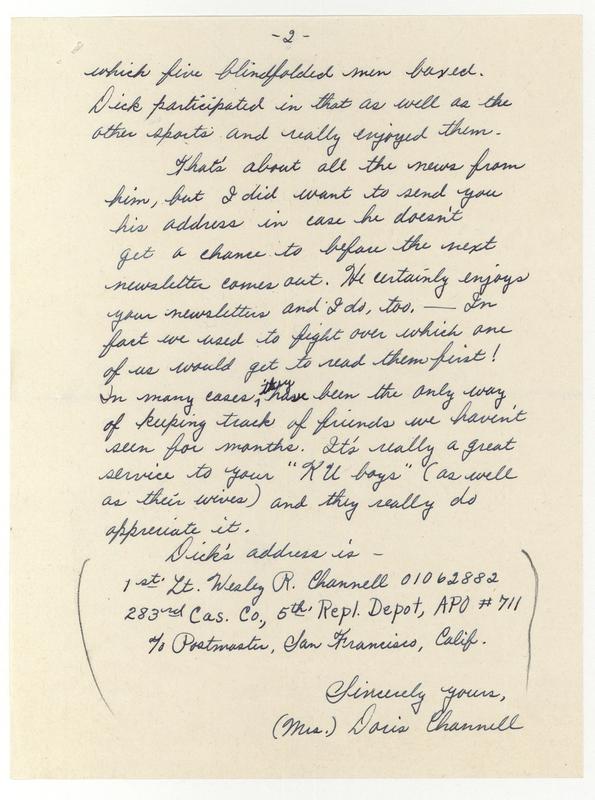 -2-
which five blindfolded men boxed.
Dick participated in that as well as the
other sports and really enjoyed them.
That's about all the news from
him, but I did want to send you
his address in case he doesn't
get a chance to before the next
newsletter comes out. He certainly enjoys
your newsletters and I do, too. — In
fact we used to fight over which one
of us would get to read them first!
In many cases, they have been the only way
of keeping track of friends we haven't
seen for months. It's really a great
service to your "KU boys" (as well
as their wives) and they really do
appreciate it.
Dick's address is -
1st. Lt. Wesley R. Channell 01062882
283rd Cas. Co., 5th Repl. Depot, APO #711
c/o Postmaster, San Francisco, Calif.
Sincerely yours,
(Mrs.) Doris Channell